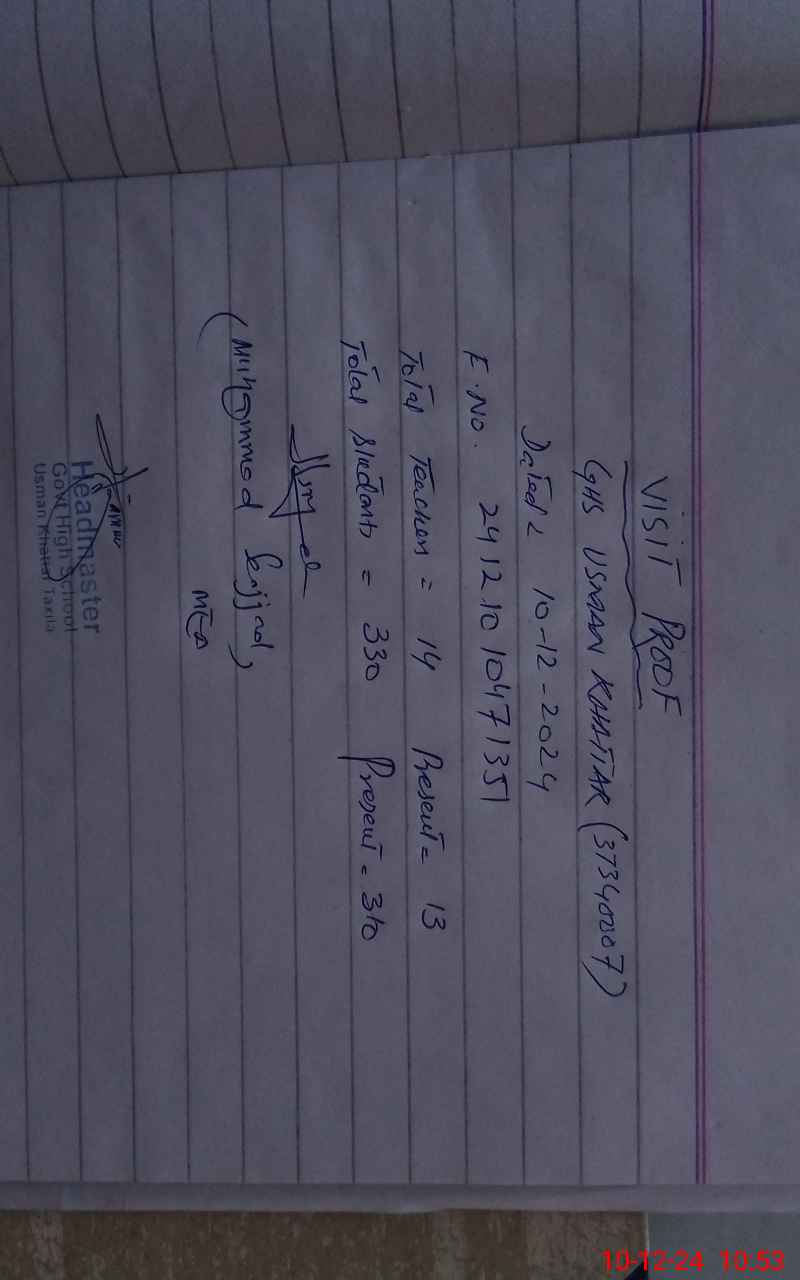 VISIT PROOF
GHS USMAN KHATTAR (37340007)
Dated: 10-12-2024
F. No. 24121010471351
Total Teachers = 14 Present = 13
Total Students = 330 Present = 310
(Muhammad Sajjad)
MEA
Headmaster
Govt High School
Usman Khattar Taxila
10-12-24 10:53